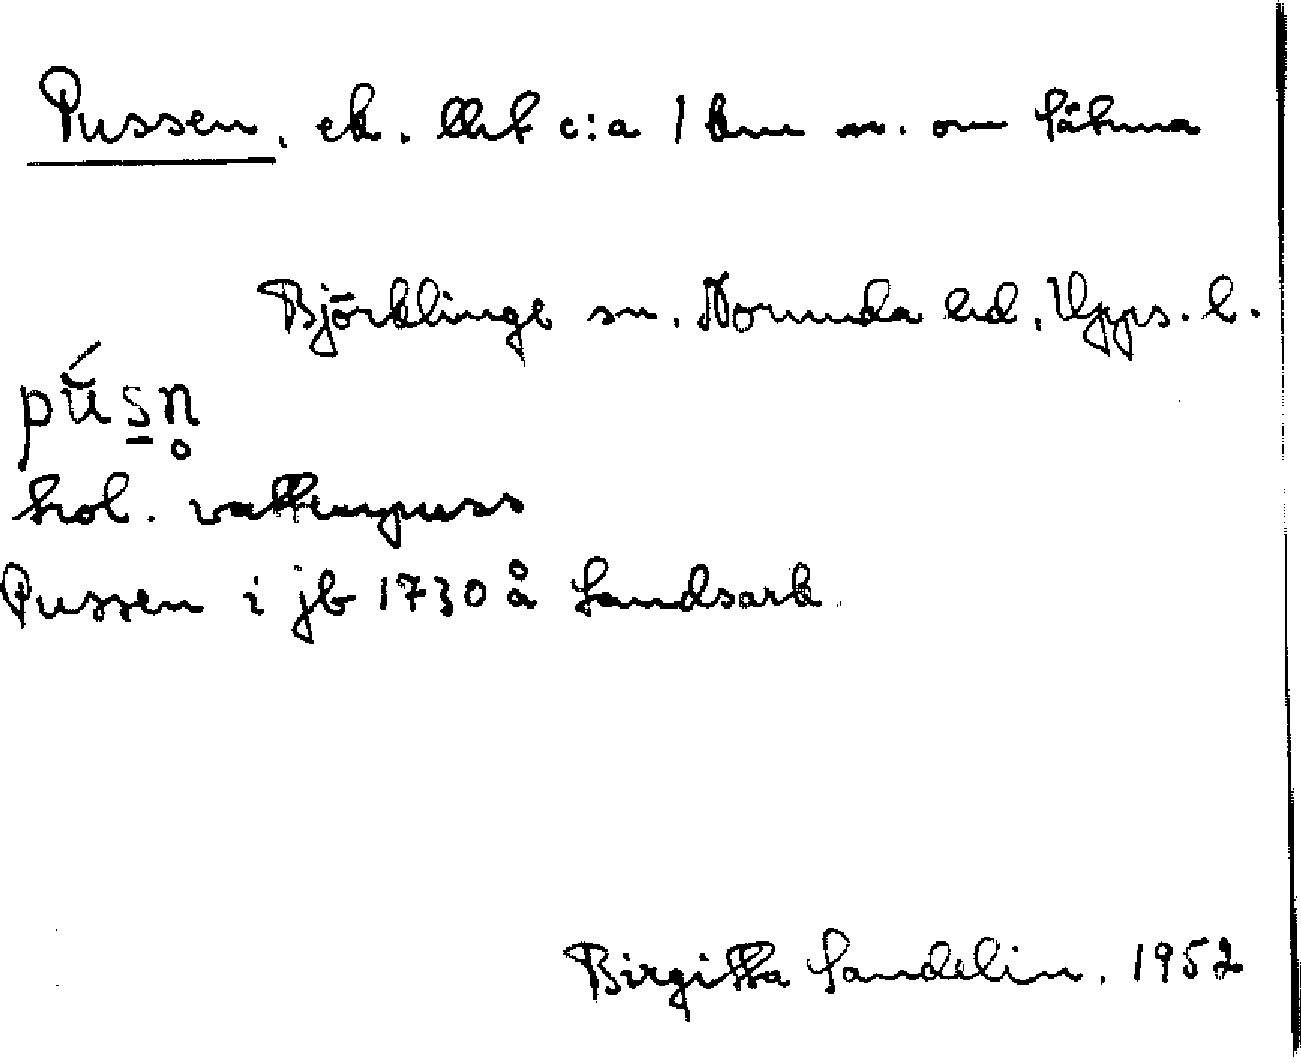 Pussen, ek. llt c:a 1 km n. om Sätuna
Björklinge sn. Norunda hd. Upps. l.
pŭ́sn̥
trol. vattenpuss
Pussen i jb 1730 å Landsark.
Birgitta Sandelin, 1952